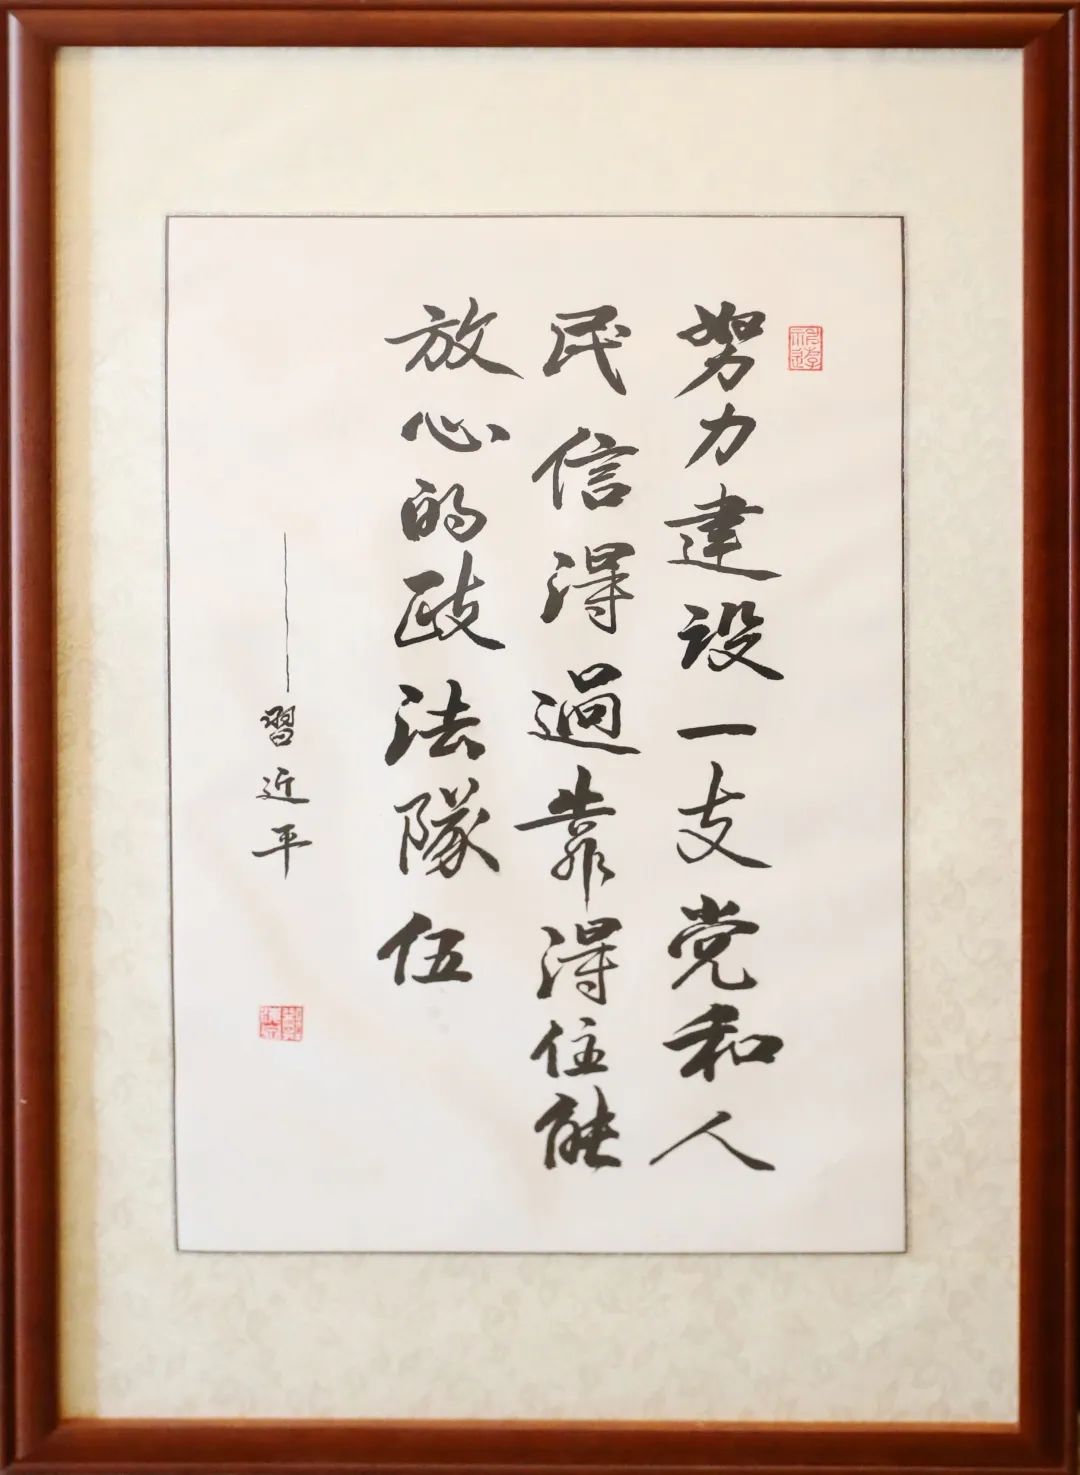 努力建设一支党和人
民信得過靠得住能
放心的政法隊伍
——習近平